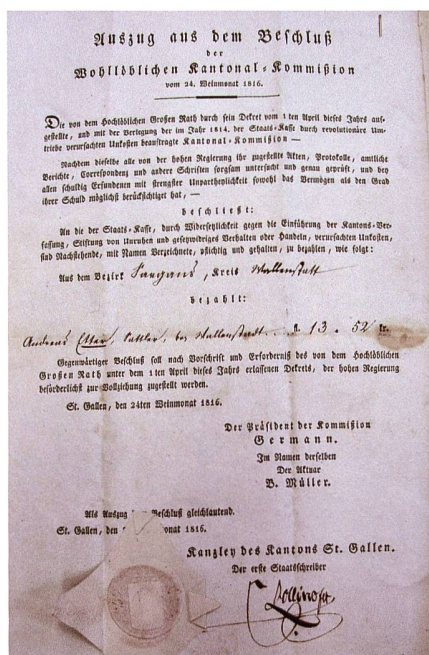 Auszug aus dem Beschluß
der
Wohllöblichen Kantonal-Kommißion
vom 24. Weinmonat 1816.
Die von dem Hochlöblichen Großen Rath durch sein Dekret vom 1ten April dieses Jahrs auf-
gestellte, und mit der Verlegung der im Jahr 1814. der Staats-Kasse durch revolutionäre Um-
triebe verursachten Unkosten beauftragte Kantonal-Kommißion —
Nachdem dieselbe alle von der hohen Regierung ihr zugestellte Akten, Protokolle, amtliche
Berichte, Correspondenz und andere Schriften sorgsam untersucht und genau geprüft, und bey
allen schuldig Erfundenen mit strengster Unpartheylichkeit sowohl das Vermögen als den Grad
ihrer Schuld möglichst berücksichtiget hat, —
beschließt:
An die der Staats-Kasse, durch Widersetzlichkeit gegen die Einführung der Kantons-Ver-
fassung, Stiftung von Unruhen und gesetzwidriges Verhalten oder Handeln, verursachten Unkosten,
sind Nachstehende, mit Namen Verzeichnete, pflichtig und gehalten, zu bezahlen, wie folgt:
Aus dem Bezirk Sargans, Kreis Wallenstatt
bezahlt:
Andreas Etter, Sattler, bey Wallenstadt. fl. 13 - 52 kr.
Gegenwärtiger Beschluß soll nach Vorschrift und Erforderniß des von dem Hochlöblichen
Großen Rath unter dem 1ten April dieses Jahrs erlassenen Dekrets, der hohen Regierung
beförderlichst zur Vollziehung zugestellt werden.
St. Gallen, den 24ten Weinmonat 1816.
Der Präsident der Kommißion
Germann.
Im Namen derselben
Der Aktuar
B. Müller.
Als Auszug Beschluß gleichlautend.
St. Gallen, den monat 1816.
Kanzley des Kantons St. Gallen.
Der erste Staatsschreiber
Zollikofer